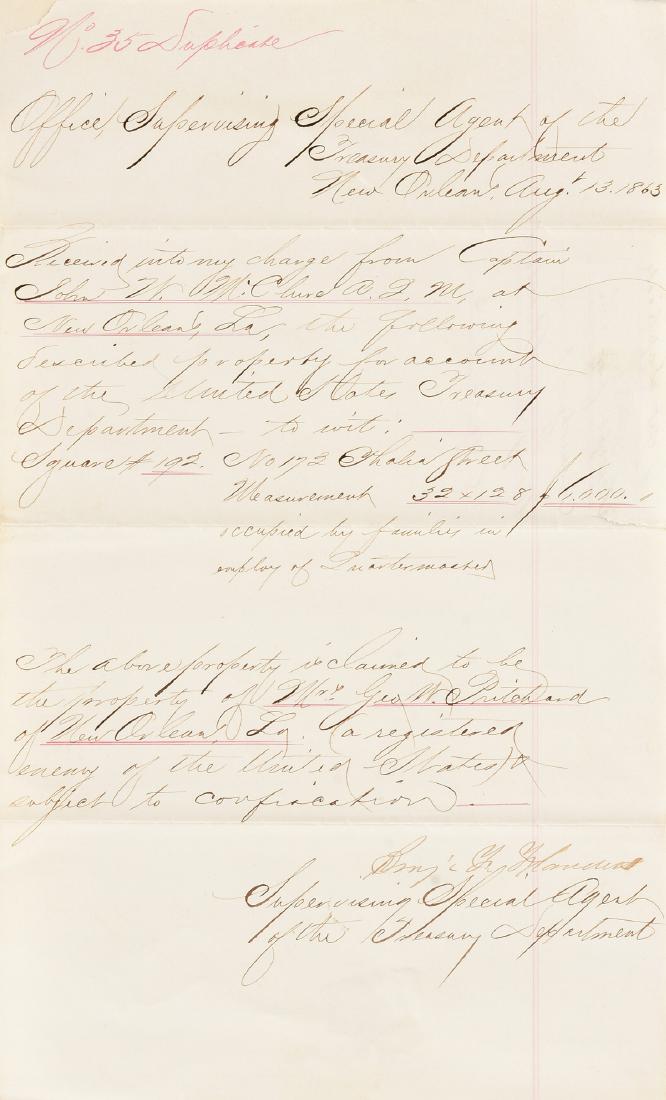 No. 35 Duplicate
Office Supervising Special Agent of the
Treasury Department
New Orleans, Augt. 13. 1863
Received into my charge from Captain
John W. McClure A. Q. M, at
New Orleans, La, the following
described property for account
of the United States Treasury
Department — to wit:
Square # 192. No 172 Thalia Street
Measurement 32 x 128 $6,000.
occupied by families in
employ of Quartermaster
The above property is claimed to be
the property of Mrs. Geo W. Pritchard
of New Orleans, La. (a registered
enemy of the United States) &
subject to confiscation.
Benj. F. Flanders
Supervising Special Agent
of the Treasury Department